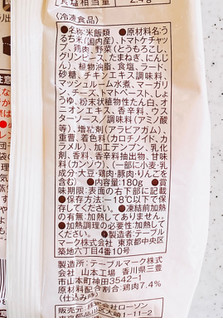 食塩相当量 2.4g
〈冷凍食品〉
●名称 米飯類 ●原材料名 う
るち米(国内産)、トマトケチャッ
プ、鶏肉、野菜(とうもろこし、
グリンピース、たまねぎ、にんじ
ん)、植物油脂、食塩、ラード、
砂糖、チキンエキス調味料、
マッシュルーム水煮、マーガリ
ン、トマトペースト、
うゆ、粉末状植物性たん白、
オニオンエキス、香辛料、ウス
ターソース/調味料(アミノ酸
等)、増粘剤(アラビアガム)、
重曹、着色料(カロチノイド、カ
ラメル)、加工デンプン、乳化
剤、香料、香辛料抽出物、甘味
料(カンゾウ)、(一部に小麦・乳
成分・大豆・鶏肉・豚肉・りんごを
含む) ●内容量 180g ●賞味
期限 表面の右下部に記載
●保存方法 -18℃以下で保存
してください。●凍結前加熱
の有無 加熱してありません。
●加熱調理の必要性 加熱し
てください。●製造者 テーブル
マーク株式会社 東京都中央区
築地六丁目4番10号
製造所:テーブルマーク株式会社
山本工場 香川県三豊
市山本町神田3542-1
原料配合割合:鶏肉7.4%
(仕込み時)
販売者 株式会社ローソン
1-11-2